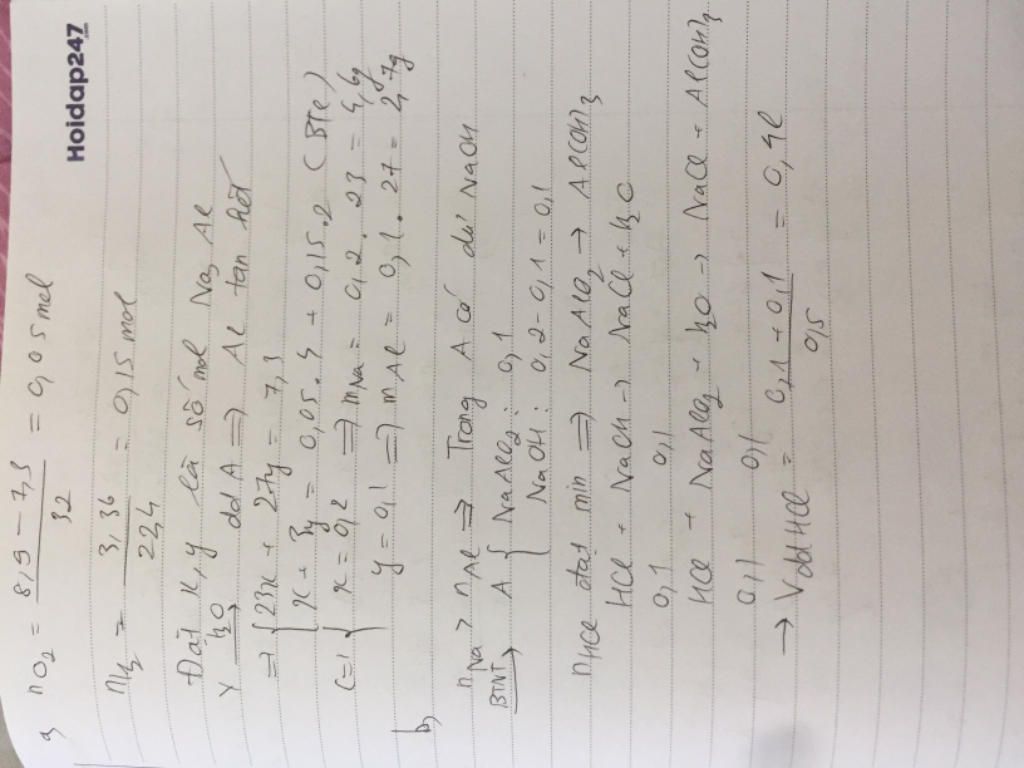 Hoidap247
a, nO2 = 8,9 - 7,3 / 32 = 0,05 mol
nH2 = 3,36 / 22,4 = 0,15 mol
Đặt x, y là số mol Na, Al
Y →H2O dd A => Al tan hết
=> { 23x + 27y = 7,3
x + 3y = 0,05.4 + 0,15.2 (BTe)
(=) { x = 0,2 => mNa = 0,2 . 23 = 4,6g
y = 0,1 => mAl = 0,1 . 27 = 2,7g
b, nNa > nAl => Trong A có dư NaOH
BTNT→ A { NaAlO2 : 0,1
NaOH : 0,2 - 0,1 = 0,1
nHCl đạt min => NaAlO2 → Al(OH)3
HCl + NaOH -> NaCl + H2O
0,1 0,1
HCl + NaAlO2 + H2O -> NaCl + Al(OH)3
0,1 0,1
→ VddHCl = 0,1 + 0,1 / 0,5 = 0,4l